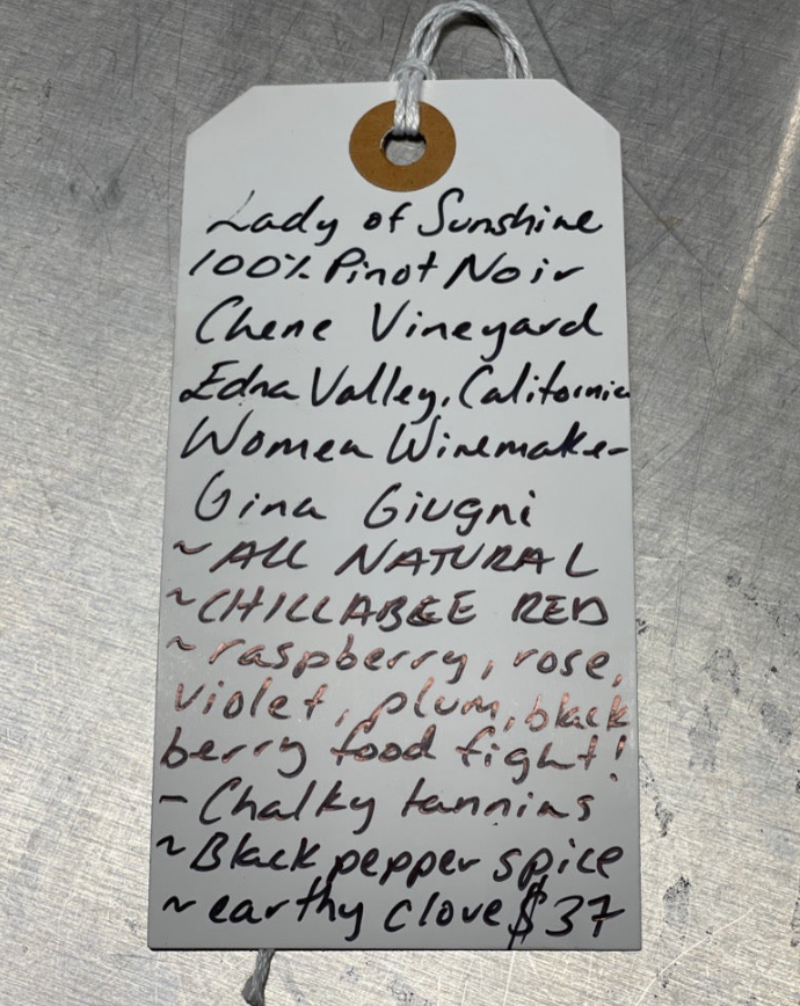 Lady of Sunshine
100% Pinot Noir
Chene Vineyard
Edna Valley, California
Women Winemaker
Gina Giugni
~ ALL NATURAL
~ CHILLABLE RED
~ raspberry, rose,
violet, plum, black
berry food fight!
- Chalky tannins
~ Black pepper spice
~ earthy clove $37